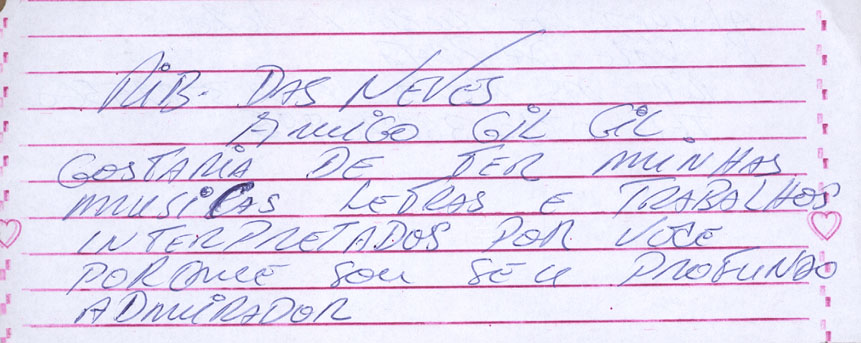 RIB. DAS NEVES
AMIGO GIL GIL.
GOSTARIA DE TER MINHAS
MUSICAS LETRAS E TRABALHOS
INTERPRETADOS POR VOCE
PORQUE SOU SEU PROFUNDO
ADMIRADOR